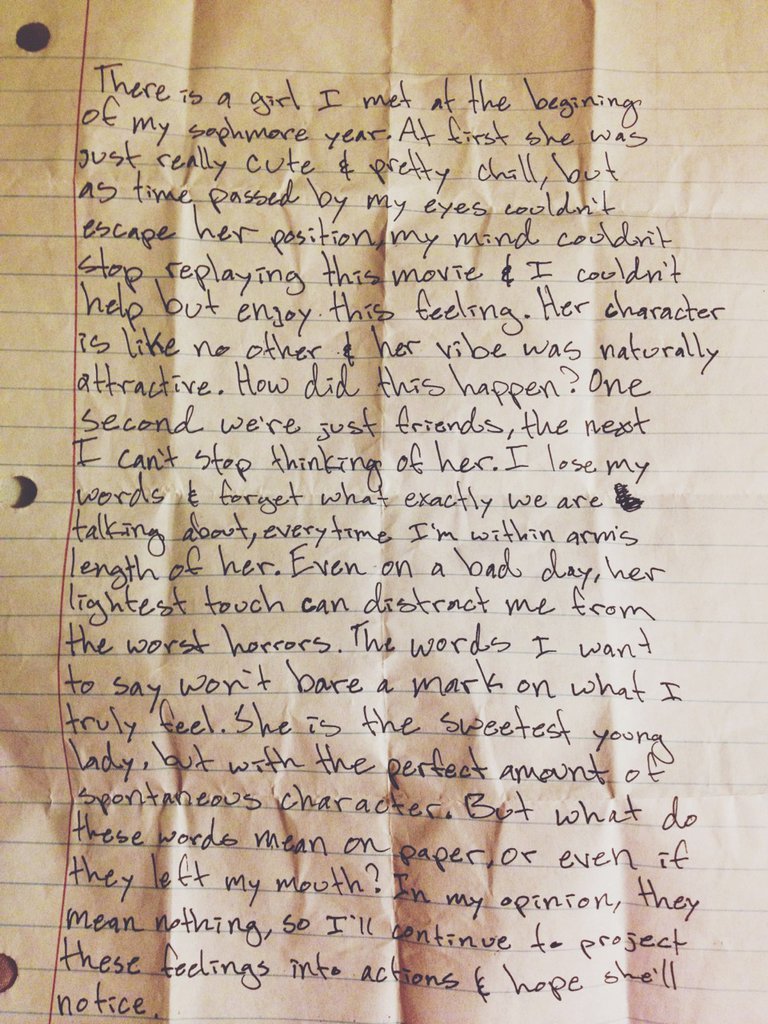 There is a girl I met at the begining
of my sophmore year. At first she was
just really cute & pretty chill, but
as time passed by my eyes couldn't
escape her position, my mind couldn't
stop replaying this movie & I couldn't
help but enjoy this feeling. Her character
is like no other & her vibe was naturally
attractive. How did this happen? One
second we're just friends, the next
I can't stop thinking of her. I lose my
words & forget what exactly we are
talking about, everytime I'm within arm's
length of her. Even on a bad day, her
lightest touch can distract me from
the worst horrors. The words I want
to say won't bare a mark on what I
truly feel. She is the sweetest young
lady, but with the perfect amount of
spontaneous character. But what do
these words mean on paper, or even if
they left my mouth? In my opinion, they
mean nothing, so I'll continue to project
these feelings into actions & hope she'll
notice.